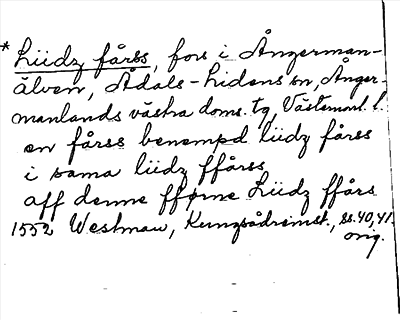 * Liidz fårss, fors i Ångerman-
älven, Ådals-Lidens sn, Ånger-
manlands västra doms. tg, Västernorrl. l.
en fårss benempd liidz fårss
i sama liidz ffårss
aff denne fförne Liidz ffårs
1552 Westman, Kungsådreinst., ss. 40, 41.
orig.